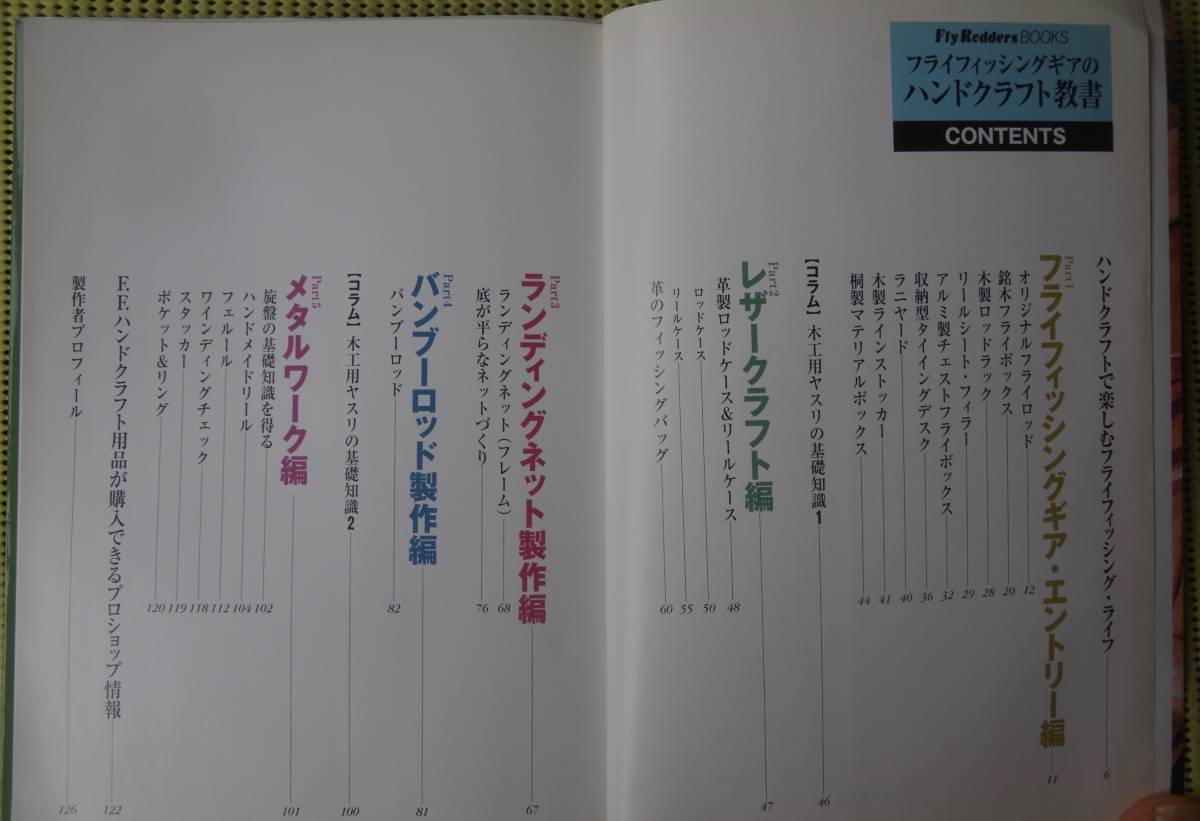 Fly Rodders BOOKS
フライフィッシングギアの
ハンドクラフト教書
CONTENTS
ハンドクラフトで楽しむフライフィッシング・ライフ 6
Part1
フライフィッシングギア・エントリー編 11
オリジナルフライロッド 12
銘木フライボックス 20
木製ロッドラック 28
リールシート・フィラー 29
アルミ製チェストフライボックス 32
収納型タイイングデスク 36
ラニヤード 40
木製ラインストッカー 41
桐製マテリアルボックス 44
【コラム】木工用ヤスリの基礎知識1 46
Part2
レザークラフト編 47
革製ロッドケース&リールケース 48
ロッドケース 50
リールケース 55
革のフィッシングバッグ 60
Part3
ランディングネット製作編 67
ランディングネット(フレーム) 68
底が平らなネットづくり 76
Part4
バンブーロッド製作編 81
バンブーロッド 82
【コラム】木工用ヤスリの基礎知識2 100
Part5
メタルワーク編 101
旋盤の基礎知識を得る 102
ハンドメイドリール 104
フェルール 112
ワインディングチェック 118
スタッカー 119
ポケット&リング 120
F.F.ハンドクラフト用品が購入できるプロショップ情報 122
製作者プロフィール 126